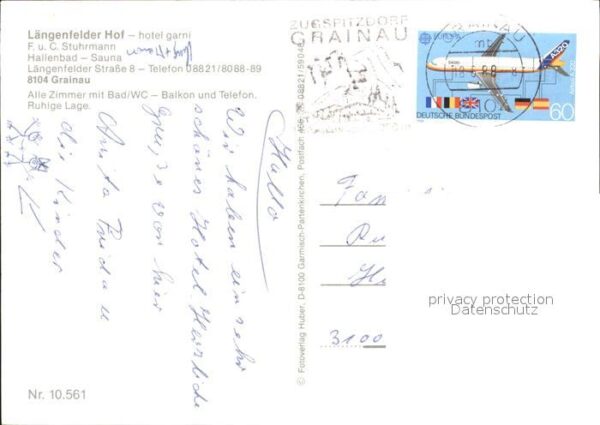 Längenfelder Hof – hotel garni
F. u. C. Stuhrmann
Hallenbad – Sauna
Längenfelder Straße 8 – Telefon 08821/8088-89
8104 Grainau
Alle Zimmer mit Bad/WC – Balkon und Telefon.
Ruhige Lage.
Hallo
Wir haben ein sehr
schönes Hotel. Herzliche
Grüße von hier
Anita
die Kinder
Nr. 10.561
© Fotoverlag Huber, D-8100 Garmisch-Partenkirchen, Postfach 466, 08821/59046
ZUGSPITZDORF
GRAINAU
GRAINAU
EUROPA
A320
Airbus A320
DEUTSCHE BUNDESPOST
60
3100
privacy protection
Datenschutz